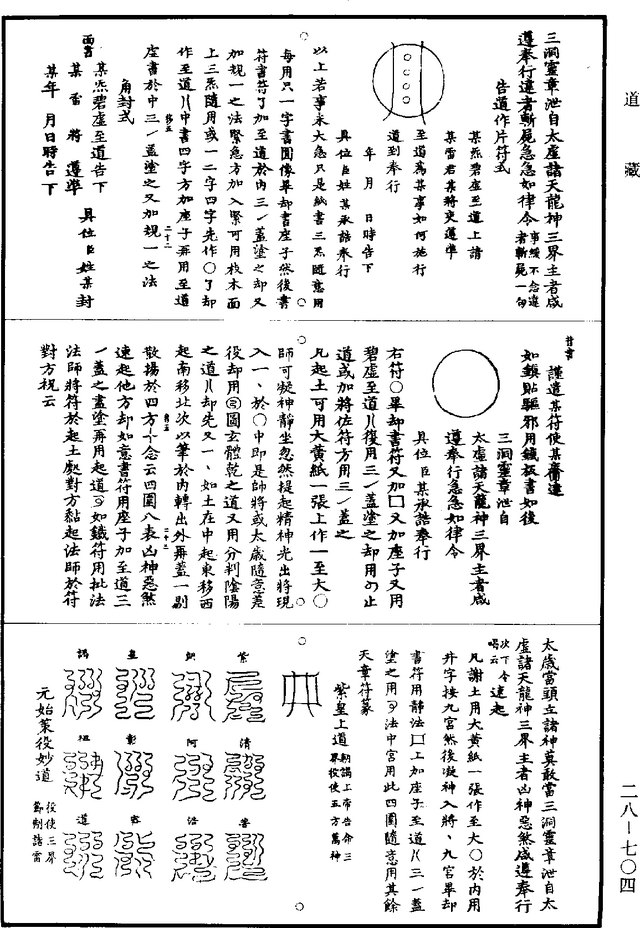 道藏
三洞靈章泄自太虛諸天龍神三界主者咸
遵奉行違者斬屍急急如律令事緩不念違者斬屍一句
告道作片符式
某炁碧虛至道上請
某雷君某將吏遵準
至道為某事如何施行
道到奉行
年月日時告下
具位臣姓某承誥奉行
以上若事未大急只是紙書三炁隨意用
每用只一字書圓像畢却書座子然後書
符書符了加至道於內三丶蓋塗之却又
加規一之法緊急方加入緊可用枝木面
上三炁隨用或一二字四字先作〇了却
作至道〢中書四字方加座子再用至道
座書於中三丶蓋塗之又加規一之法
角封式
面書
某炁碧虛至道告下
某雷將遵準
具位臣姓某封
某年月日時告下
背書
謹遣某符使某齎違
如鎮貼驅邪用鐵板書如後
三洞靈章泄自
太虛諸天龍神三界主者咸
遵奉行急急如律令
具位臣某承誥奉行
右符〇畢却書符又加口又加座子又用
碧虛至道〢復用三丶蓋塗之却用
道或加將佐符方用三丶蓋之
凡起土可用大黃紙一張上作一至大〇
師可凝神靜坐忽然提起精神光出將現
入一丶於〇中即是師將或太歲隨意差
役却用圖玄體乾之道又用分判陰陽
之道〢却先又一丶如土在中起東移西
起南移北次以筆於內轉出外再蓋一剔
散揚於四方念云四圓八表凶神惡煞
速起他方却如意書符用座子加至道三
丶蓋之畫塗再用起道如鐵符用批法
法師將符於起土處對方黏起法師於符
對方祝云
太歲當頭立諸神莫敢當三洞靈章泄自太
虛諸天龍神三界主者凶神惡煞咸遵奉行
次丁令喝云速起
凡謝土用大黃紙一張作至大〇於內用
井字按九宮然後凝神入將丶九宮畢却
書符用靜法口上加座子至道〢三丶蓋
塗之用法中宮用此四圓隨意用其餘
天章符篆
紫皇上道朝謁上帝告命三界役使五方萬神
紫清普
朗阿浩
皇彰容
謁祖道
元始策役妙道役使三界馘割諸雷
二八—七〇四